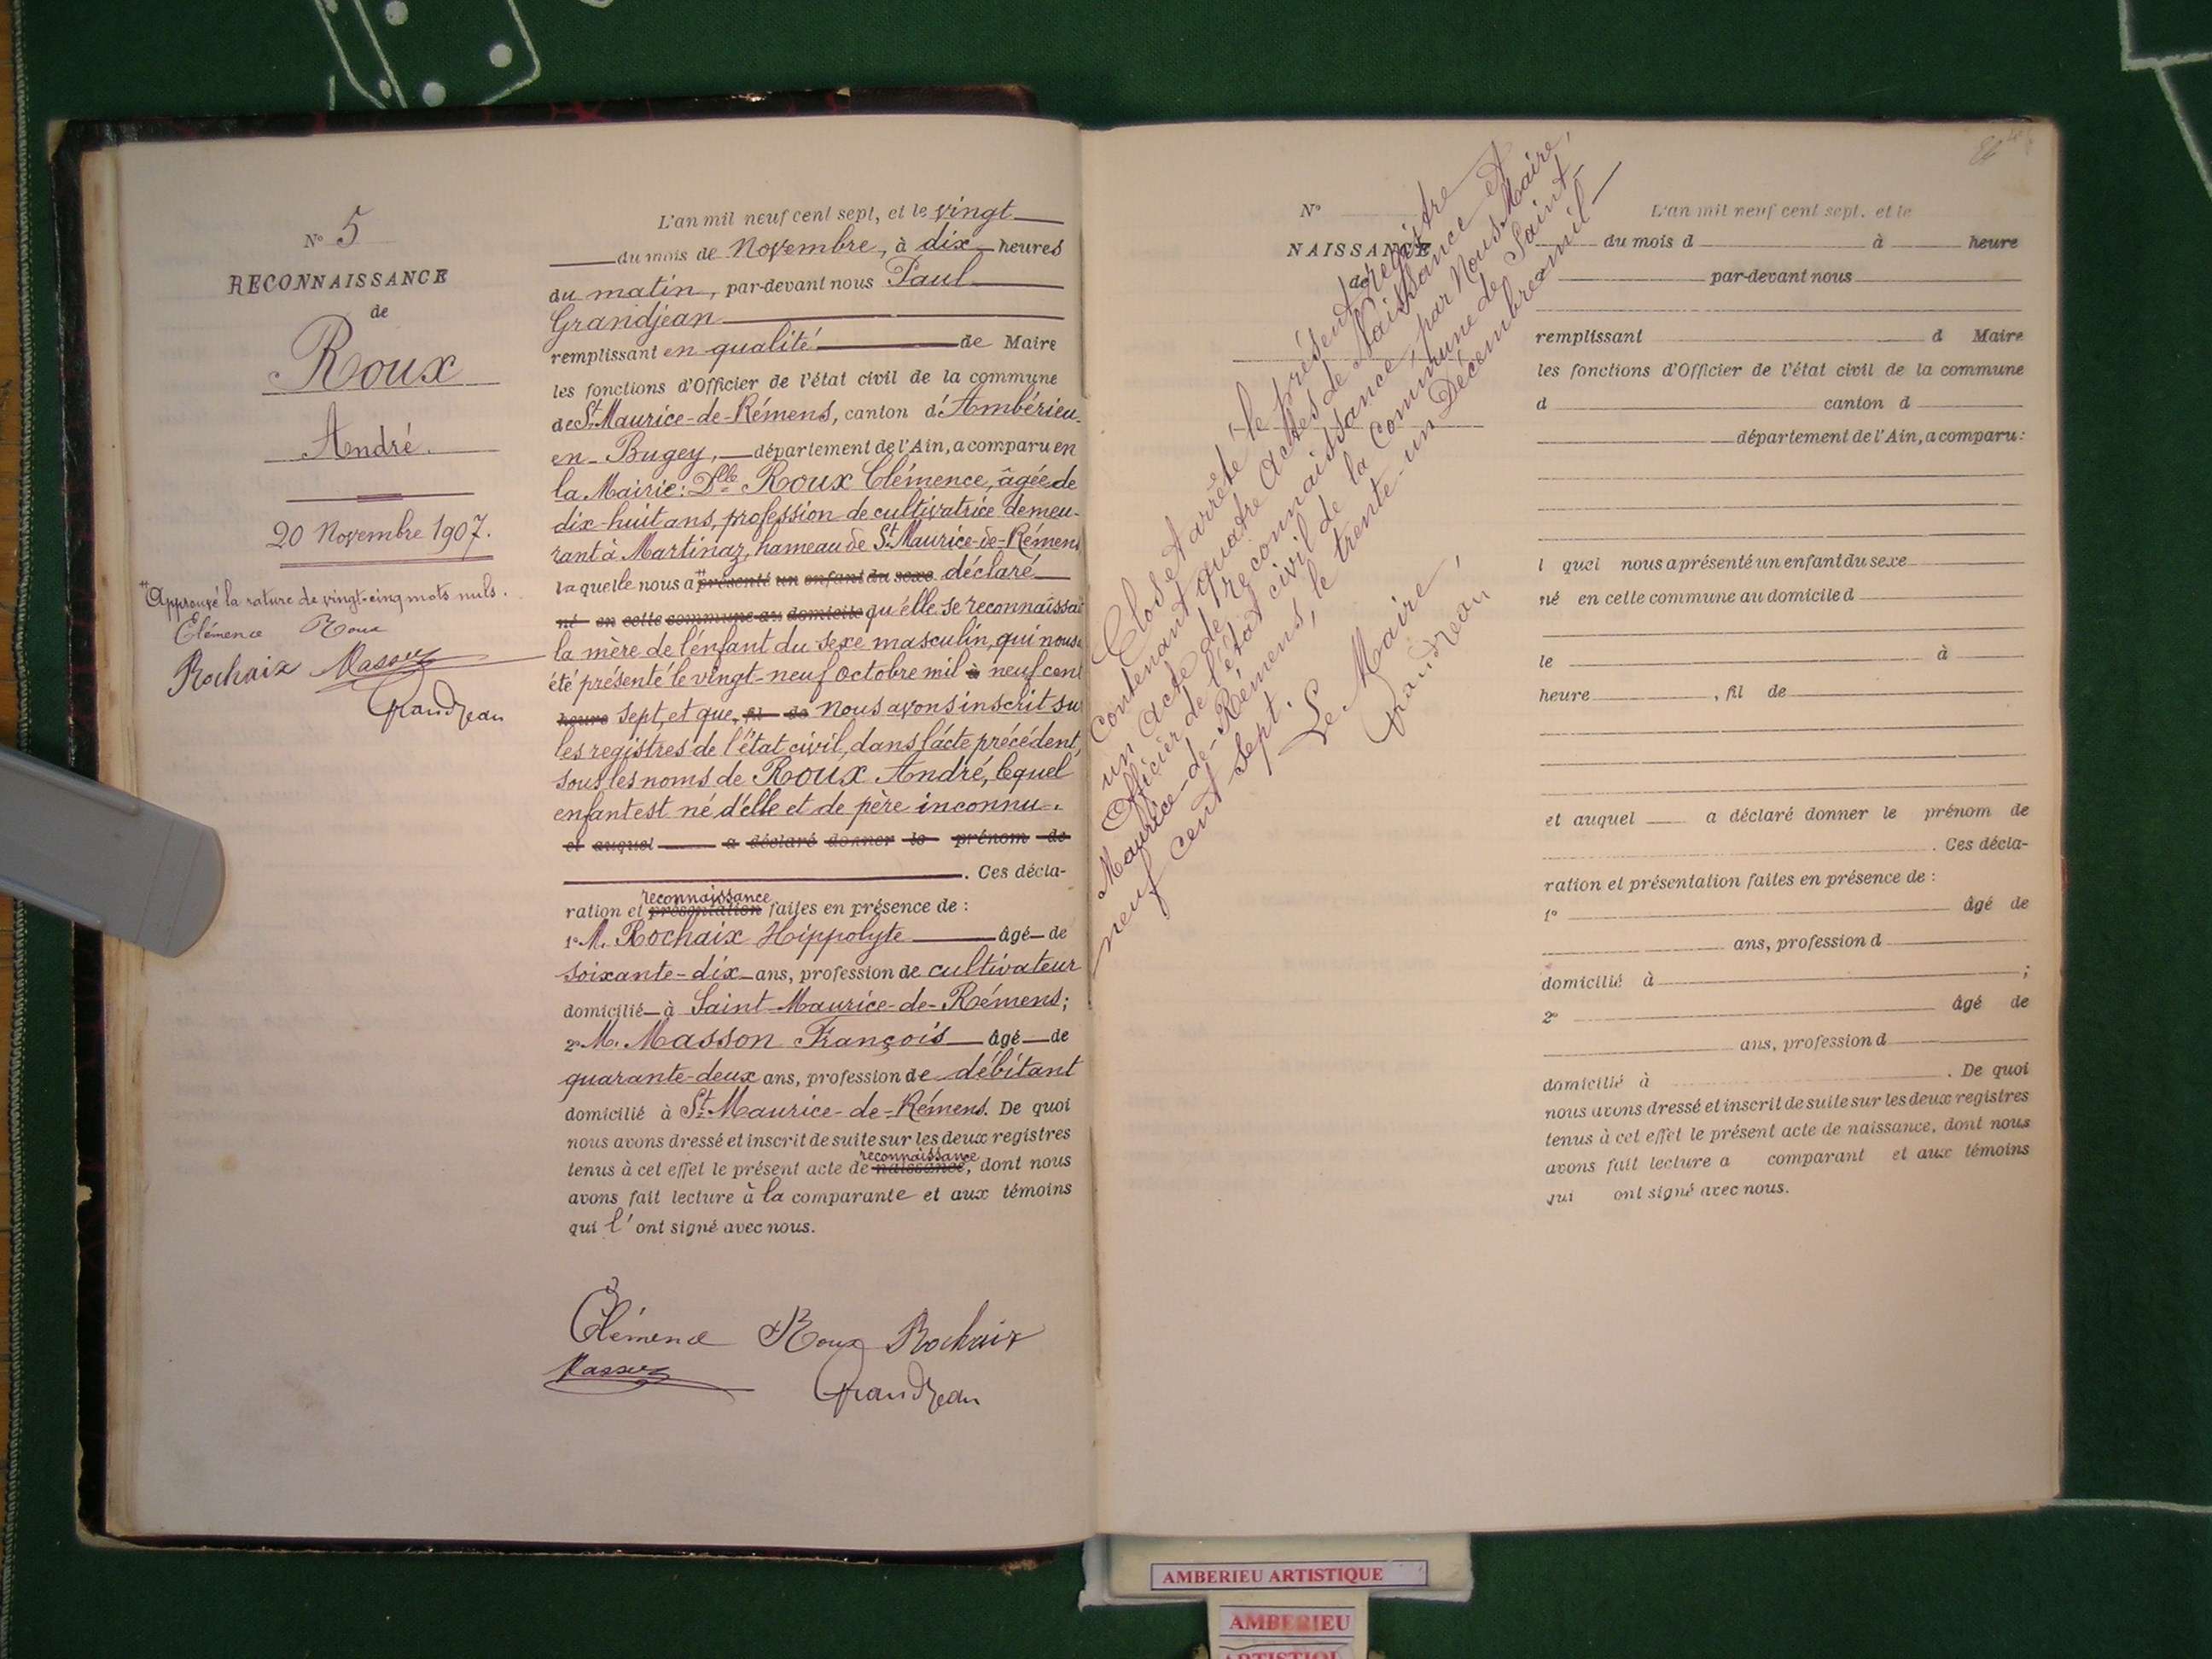 N° 5
RECONNAISSANCE
de
Roux
André.
20 Novembre 1907.
Approuvé la rature de vingt-cinq mots nuls.
Clémence Roux
Rochaix Masson
Grandjean
L'an mil neuf cent sept, et le vingt
du mois de Novembre, à dix heures
du matin, par-devant nous Paul
Grandjean
remplissant en qualité de Maire
les fonctions d'Officier de l'état civil de la commune
de St Maurice-de-Rémens, canton d'Ambérieu-
en-Bugey, département de l'Ain, a comparu en
la Mairie: Dlle Roux Clémence, âgée de
dix-huit ans, profession de cultivatrice demeu-
rant à Martinaz, hameau de St Maurice-de-Rémens
laquelle nous a présenté un enfant du sexe déclaré
né en cette commune au domicile qu'elle se reconnaissai
la mère de l'enfant du sexe masculin, qui nous a
été présenté le vingt-neuf octobre mil à neuf cent
heure sept, et que, fil de nous avons inscrit su
les registres de l'état civil, dans l'acte précédent,
sous les noms de Roux André, lequel
enfant est né d'elle et de père inconnu.
et auquel a déclaré donner le prénom de
. Ces décla-
reconnaissance
ration et présentation faites en présence de :
1° M. Rochaix Hippolyte âgé de
soixante-dix ans, profession de cultivateur
domicilié à Saint-Maurice-de-Rémens;
2° M. Masson François âgé de
quarante-deux ans, profession de débitant
domicilié à St Maurice-de-Rémens. De quoi
nous avons dressé et inscrit de suite sur les deux registres
reconnaissance
tenus à cet effet le présent acte de naissance, dont nous
avons fait lecture à la comparante et aux témoins
qui l'ont signé avec nous.
Clémence Roux Rochaix
Masson
Grandjean
N°
NAISSANCE
de
Clos et arrêté le présent registre
Contenant quatre Actes de Naissance et
un Acte de reconnaissance, par Nous Maire,
Officier de l'état civil de la Commune de Saint-
Maurice-de-Rémens, le trente-un Décembre mil
neuf cent sept.
Le Maire,
Grandjean
L'an mil neuf cent sept, et le
du mois d à heure
par-devant nous
remplissant d Maire
les fonctions d'Officier de l'état civil de la commune
d canton d
département de l'Ain, a comparu:
l quel nous a présenté un enfant du sexe
né en cette commune au domicile d
le à
heure , fil de
et auquel a déclaré donner le prénom de
. Ces décla-
ration et présentation faites en présence de :
1° âgé de
ans, profession d
domicilié à ;
2° âgé de
ans, profession d
domicilié à . De quoi
nous avons dressé et inscrit de suite sur les deux registres
tenus à cet effet le présent acte de naissance, dont nous
avons fait lecture a comparant et aux témoins
qui ont signé avec nous.
AMBERIEU ARTISTIQUE
AMBERIEU